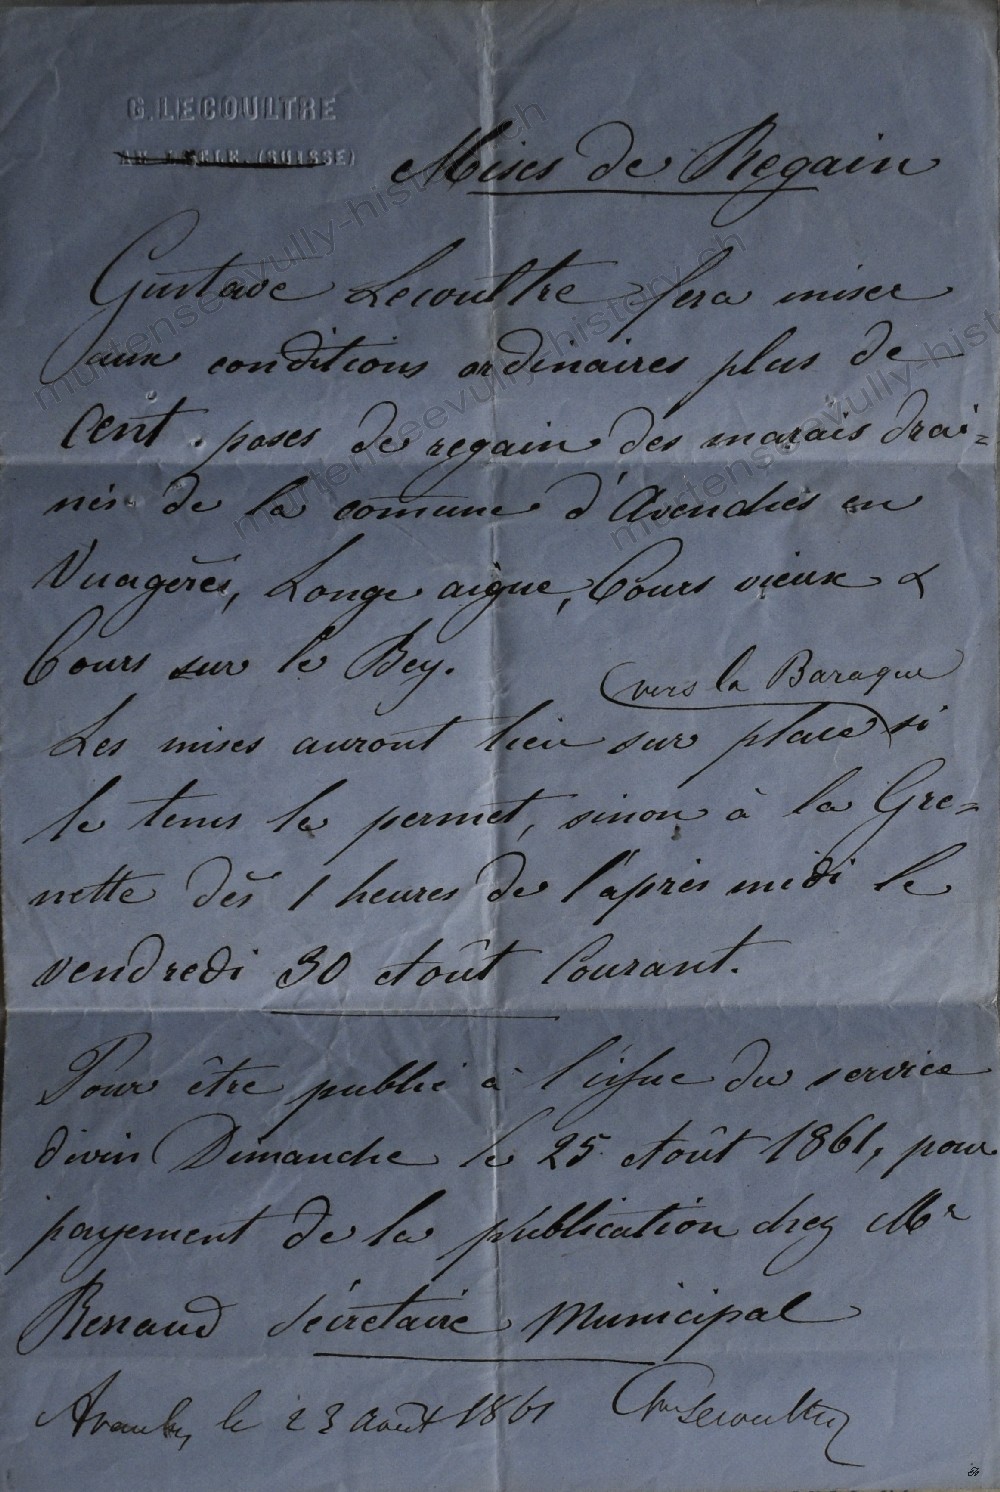 G. LECOULTRE
AU LOCLE. (SUISSE)
Mises de Regain
Gustave Lecoultre fera miser
aux conditions ordinaires plus de
Cent. poses de regain des marais drai=
nés de la comune d'Avenches en
Vuagères, Longe aigue, Cours vieux &
Cours sur le Bey.
(vers la Baraque
Les mises auront lieu sur place si
le tems le permet, sinon à la Gre=
nette dès 1 heures de l'après midi le
vendredi 30 Août Courant.
Pour être publié à l'issue du service
divin Dimanche le 25 Août 1861, pour
payement de la publication chez Mr
Renaud Sécretaire Municipal
Avenches, le 23 Août 1861 Lecoultre
murtenseevully-history.ch
murtenseevully-history.ch
murtenseevully-history